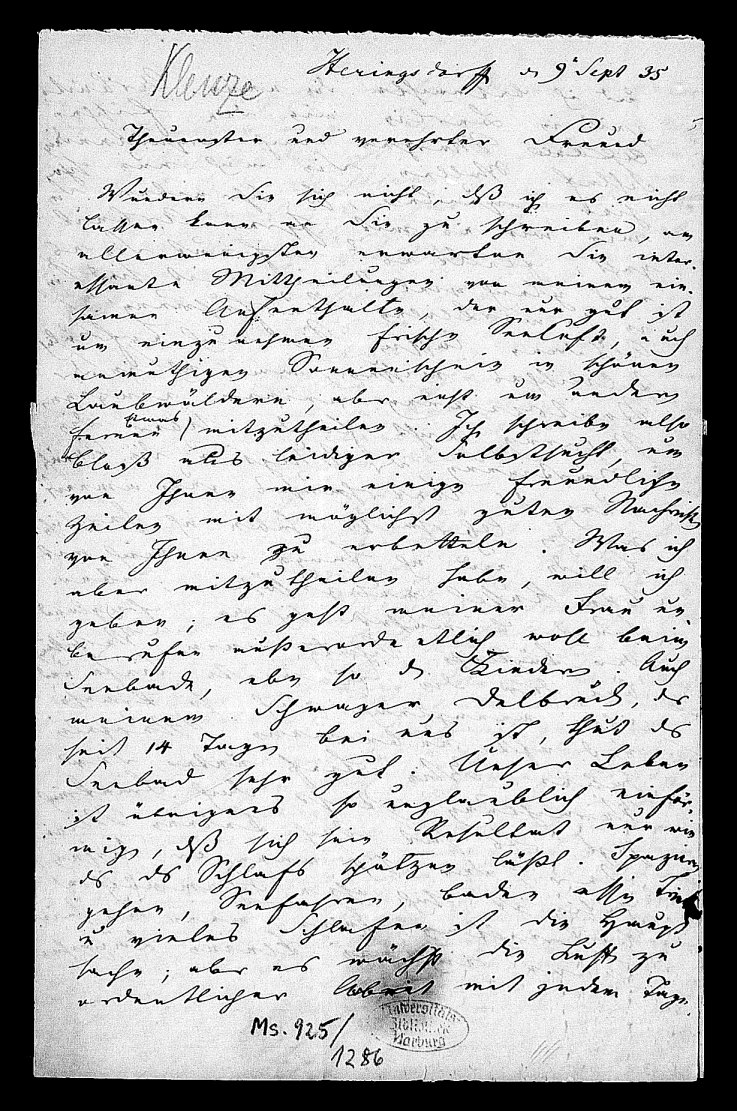 Klenze
Heringsdorff d 9 Sept 35
Theuerster und verehrter Freund
Wundern Sie sich nicht, dß ich es nicht
lassen kann an Sie zu schreiben, am
allerwenigsten erwarten Sie inter-
essante Mittheilungen von meinem ein-
samen Aufenthalte, der nur gut ist
um einzunehmen frische Seeluft, auch
anmuthigen Sonnenschein in schönen
Laubwäldern, aber nicht um andern
fernen etwas mitzutheilen. Ich schreibe also
bloß aus leidiger Selbstsucht, um
von Ihnen mir einige freundliche
Zeilen mit möglichst guten Nachricht
von Ihnen zu erbetteln. Was ich
aber mitzutheilen habe, will ich
geben; es geht meiner Frau
außerordentlich wohl beim
Seebade, eben so d Kindern. Auch
meinem Schwager Delbrück, der
seit 14 Tagen bei uns ist, thut das
Seebad sehr gut. Unser Leben
ist übrigens so unglaublich einför-
mig, dß sich sein Resultat nur wie
das des Schlafs schätzen läßt. Spazieren
gehen, Seefahren, baden, essen
u vieles Schlafen ist die Haupt
sache; aber es wächst die Lust zu
ordentlicher Arbeit mit jedem Tage.
Ms. 925/
1286
Universitäts
Bibliothek
Marburg